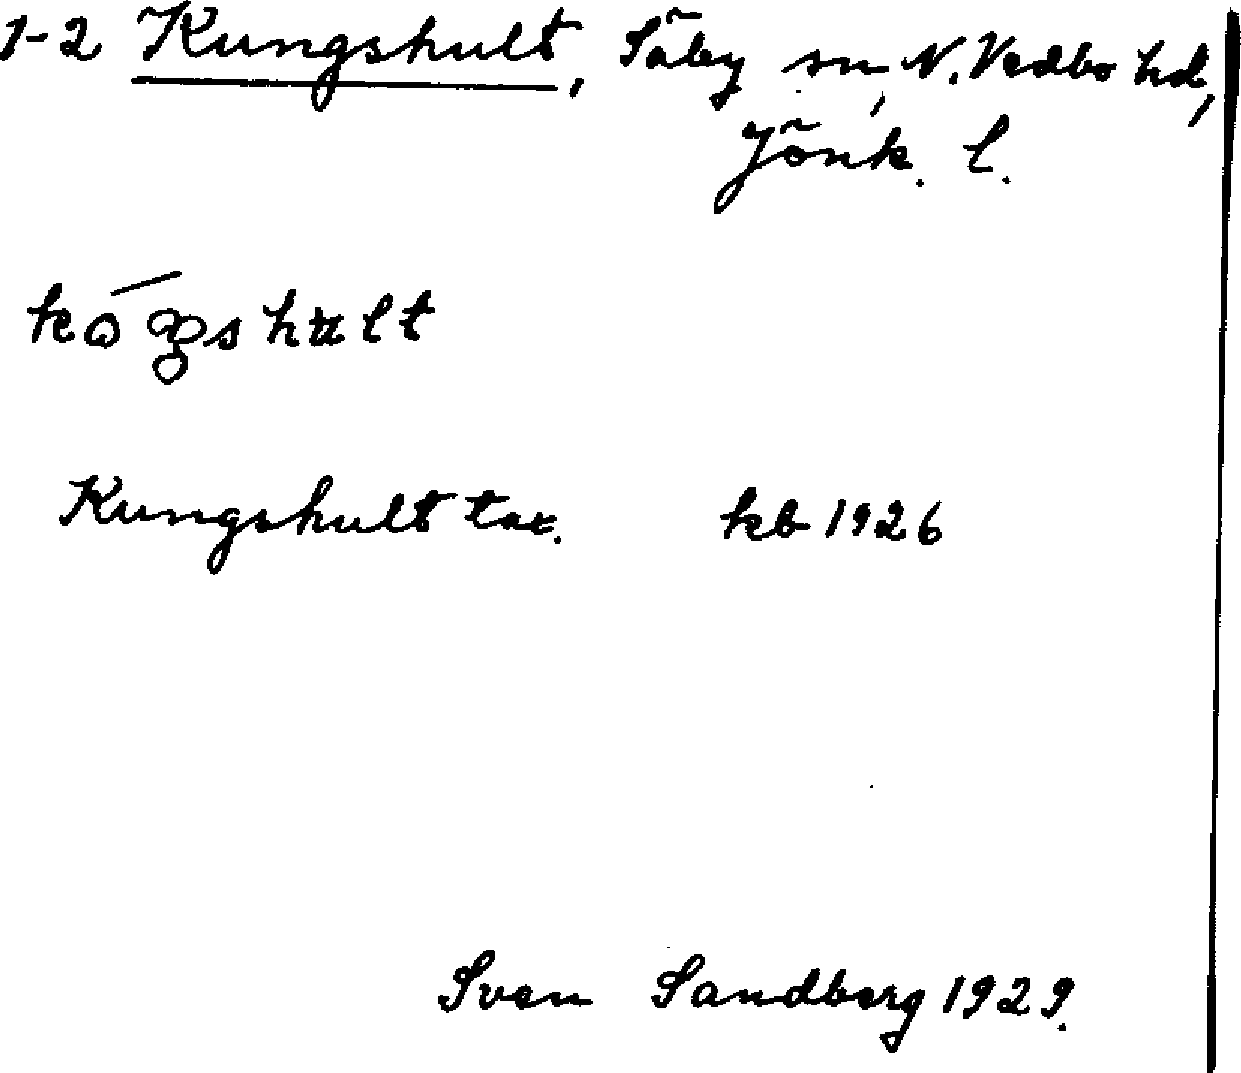 1-2 Kungshult, Säby sn, N. Vedbo hd,
Jönk. l.
Kungshult tax. kb 1926
Sven Sandberg 1929.